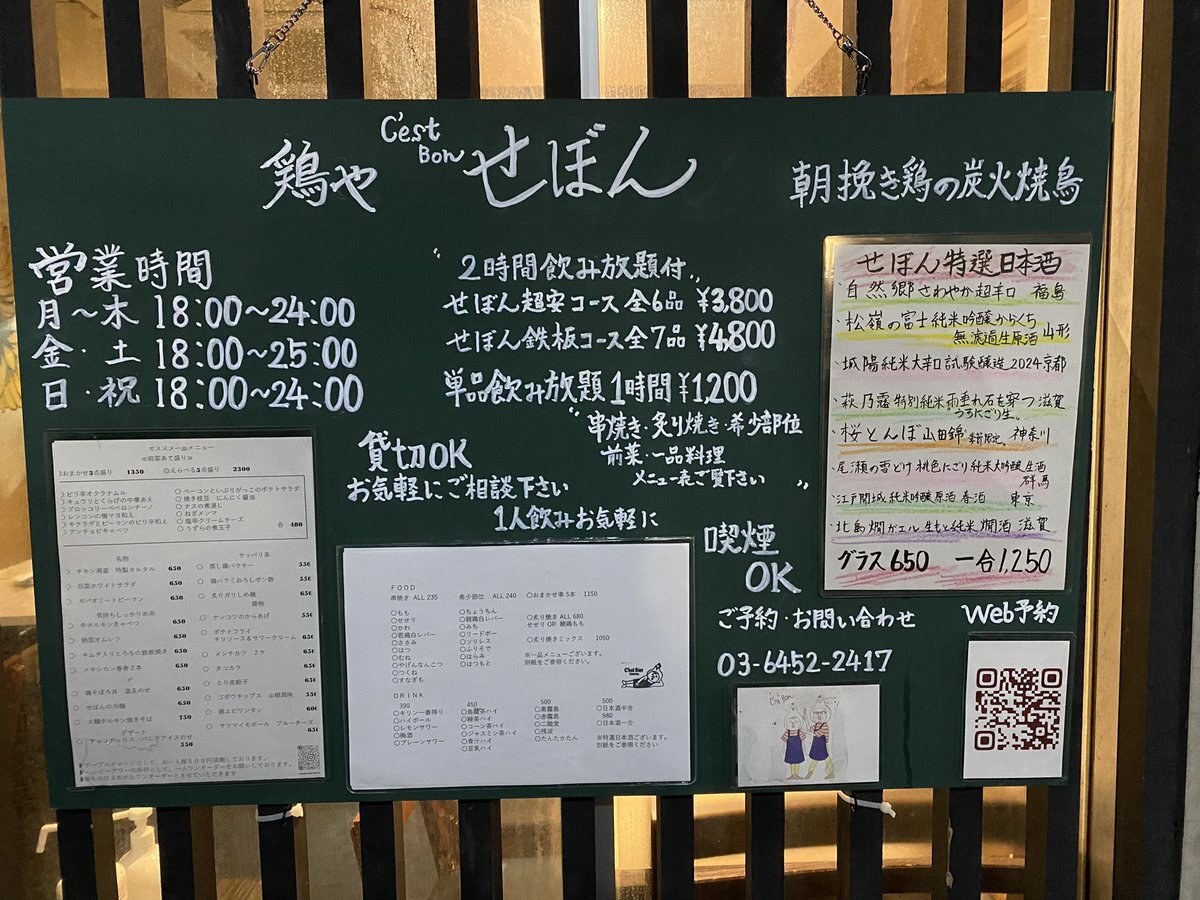 鶏や C'est Bon せぼん
朝挽き鶏の炭火焼鳥
営業時間
月〜木 18:00〜24:00
金・土 18:00〜25:00
日・祝 18:00〜24:00
"2時間飲み放題付"
せぼん超安コース全6品 ¥3,800
せぼん鉄板コース全7品 ¥4,800
単品飲み放題 1時間 ¥1,200
"串焼き・炙り焼き・希少部位
前菜・一品料理
メニュー表ご覧下さい"
貸切OK
お気軽にご相談下さい
1人飲みお気軽に
喫煙
OK
ご予約・お問い合わせ
03-6452-2417
Web予約
せぼん特選日本酒
・自然郷 さわやか超辛口 福島
・松嶺の富士 純米吟醸からくち
無濾過生原酒 山形
・城陽 純米大辛口 試験醸造2024 京都
・萩乃露 特別純米 雨垂れ石を穿つ 滋賀
うすにごり生。
・桜とんぼ 山田錦 神奈川
・尾瀬の雪どけ 桃色にごり 純米大吟醸 生酒
群馬
・江戸開城 純米吟醸原酒 春酒 東京
・北島 燗がエル 生もと純米 燗酒 滋賀
グラス650 一合1,250
オススメ一品メニュー
≪前菜あて盛り≫
おまかせ3点盛り 1350 ◎えらべる5点盛り 2300
ピリ辛オクラナムル
キュウリとくらげの中華あえ
ブロッコリーペペロンチーノ
レンコンの梅マヨ和え
キクラゲとピーマンのピリ辛和え
アンチョビキャベツ
○ベーコンといぶりがっこのポテトサラダ
○焼き枝豆 にんにく醤油
○ナスの煮浸し
○ねぎメンマ
○塩辛クリームチーズ
○うずらの煮玉子
各480
名物
チキン南蛮 特製タルタル 650
白菜ホワイトサラダ 650
ガパオミートピーマン 650
気持ちしっかりめ系
牛ホルモンぎゃべつ 650
納豆オムレツ 650
キムチ入りとろろの鉄板焼き 650
メキシカン春巻2本 650
〆
鶏そぼろ丼 温玉のせ 650
せぼんの冷麺 650
太麺ホルモン焼きそば 750
デザート
バニラアイスのせ 550
サッパリ系
○蒸し鶏パクチー 550
○鶏ハラミおろしポン酢 550
○炙りガリしめ鯖 650
揚物
○ナンコツのからあげ 550
○ポテトフライ
チリソース&サワークリーム 650
○メンチカツ 2ケ
○タコカラ
○とり皮餃子
○ゴボウチップス 山椒風味
○揚エビワンタン
○サツマイモボール ブルーチーズ
テーブルチャージとして、お一人様500円頂戴しております。
ハッピーアワーの条件として、一人ワンオーダーをお願いしております。
FOOD
串焼き ALL 235
○もも
○せせり
○かわ
○若鶏白レバー
○ささみ
○はつ
○むね
○やげんなんこつ
○つくね
○すなぎも
希少部位 ALL 240
○ちょうちん
○親鶏白レバー
○みち
○リードボー
○ソリレス
○ふりそで
○はらみ
○はつもと
○おまかせ串5本 1150
○炙り焼き ALL 680
せせり OR 親鶏もも
○炙り焼きミックス 1050
※一品メニューございます。
別紙をご参照ください。
C'est Bon
DRINK
390
○キリン一番搾り
○ハイボール
○レモンサワー
○梅酒
○プレーンサワー
450
○烏龍茶ハイ
○緑茶ハイ
○コーン茶ハイ
○ジャスミン茶ハイ
○青汁ハイ
○豆乳ハイ
500
○黒霧島
○赤霧島
○二階堂
○残波
○たんたかたん
500
○日本酒半合
980
○日本酒一合
※特選日本酒ございます。
別紙をご参照ください